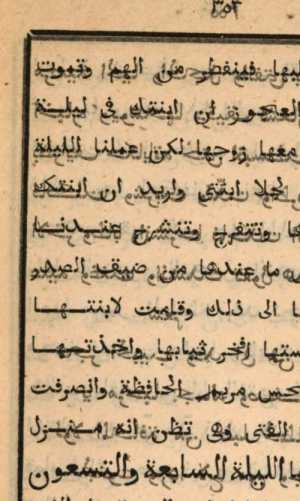 ٣٥٢
ليها فينفطر من الهم وتموت
العجوز ان ابنتك في ليلة
معها زوجها لكن عملنا الليلة
لجل ابنتي واريد ان ابنتك
ها وتتفرج وتنشرح عندنا
ما عندها من ضيق الصدر
ا الى ذلك وقامت لابنتها
ستها افخر ثيابها واخذتها
الحافظة وانصرفت
الفتى وهي تظن انه منزل
الليلة السابعة والتسعون